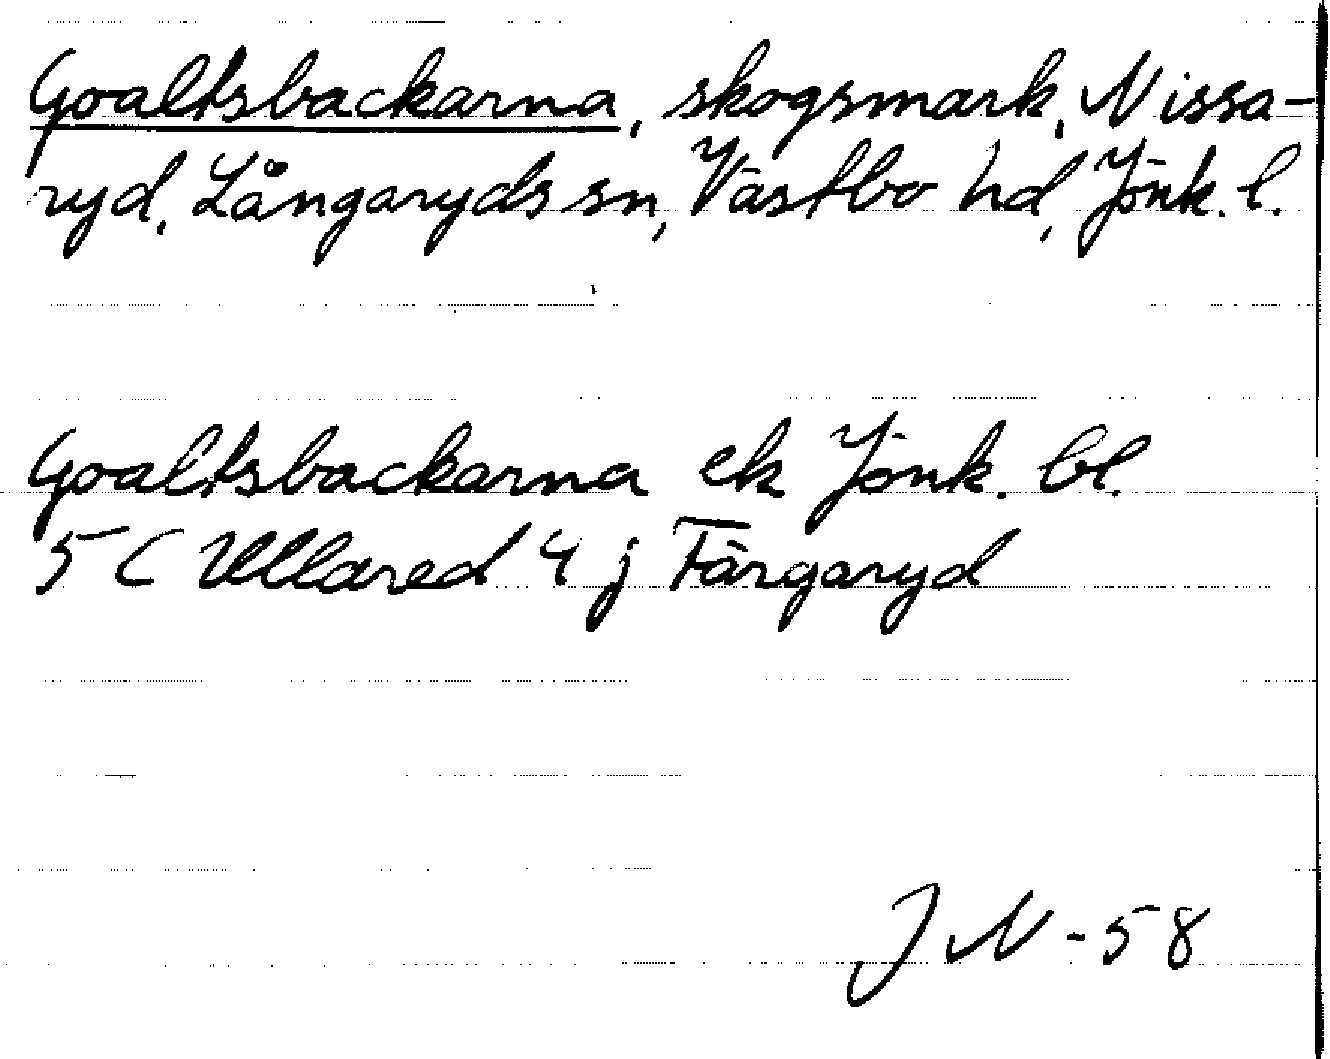 Goaltsbackarna, skogsmark, Nissa-
ryd, Långaryds sn, Västbo hd, Jönk. l.
Goaltsbackarna ek Jönk. bl.
5 C Ullared 4 j Färgaryd
JN -58